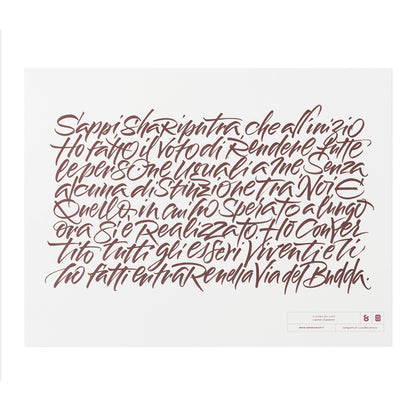 Sappi Shariputra, che all'inizio
Ho fatto il Voto di Rendere tutte
le persone uguali a me Senza
alcuna distinzione tra Noi E
Quello in cui ho Sperato a lungo
ora Si è Realizzato. Ho Conver
tito tutti gli esseri Viventi e li
ho fatti entraRe nella Via del Budda.